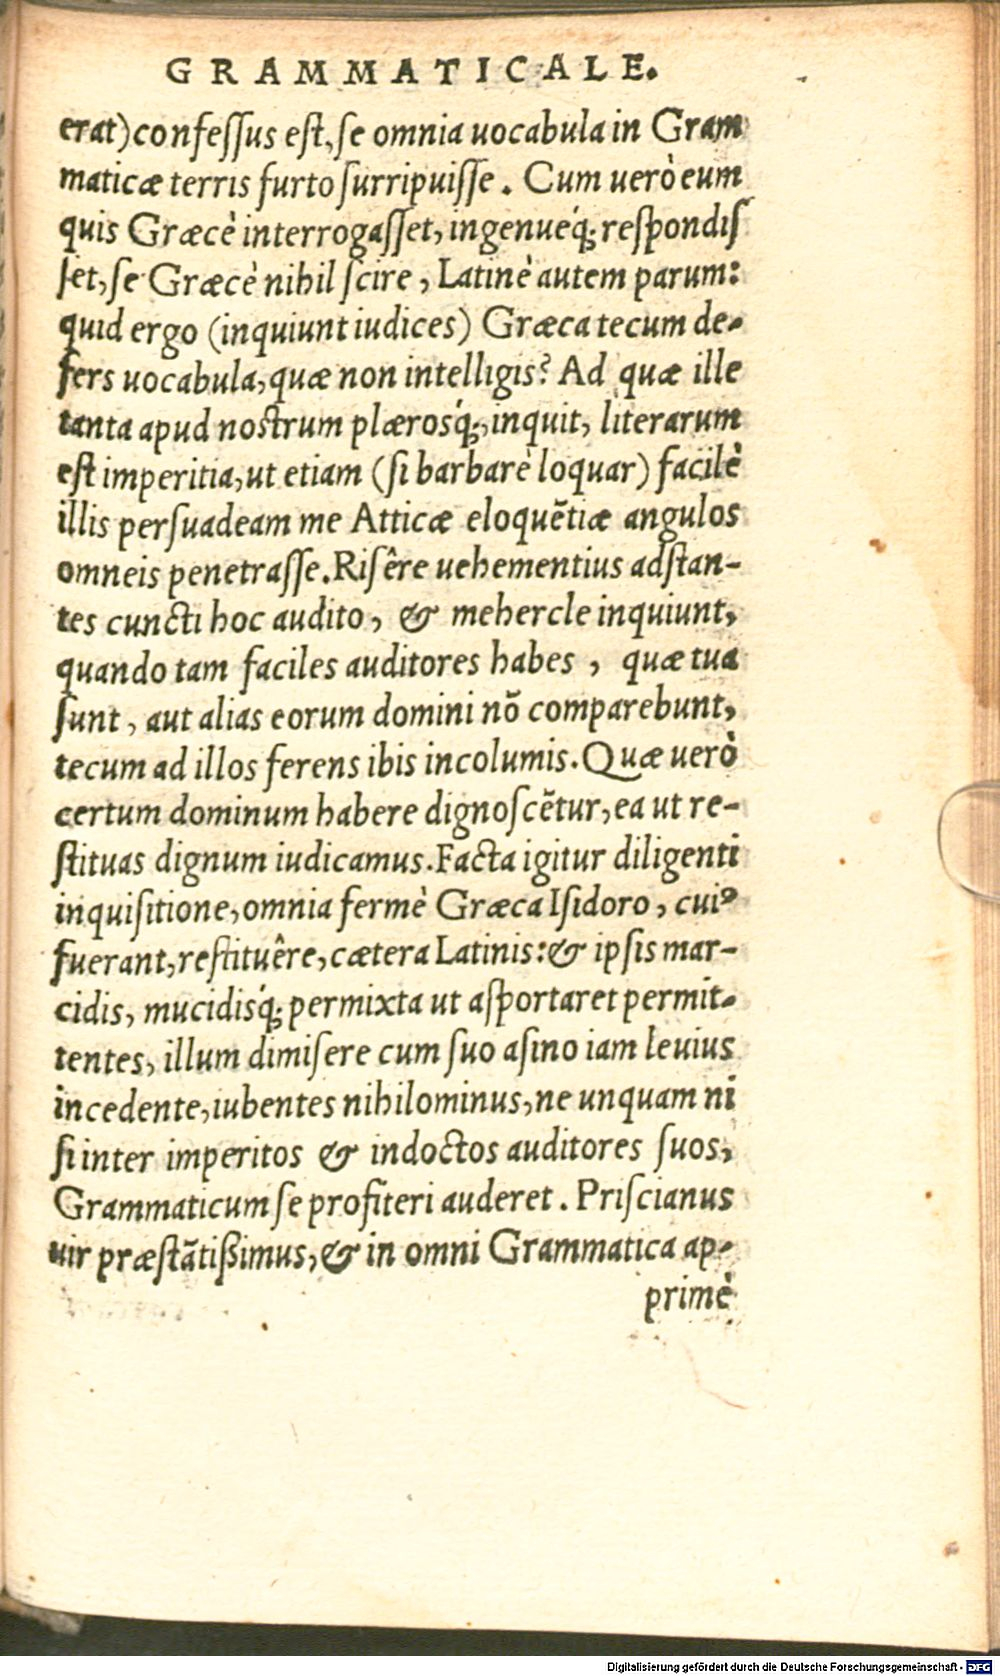 GRAMMATICALE.
erat)confessus est, se omnia uocabula in Gram
maticæ terris furto surripuisse. Cum uerò eum
quis Græcè interrogasset, ingenueq́; respondis
set, se Græcè nihil scire, Latinè autem parum:
quid ergo (inquiunt iudices) Græca tecum de-
fers uocabula, quæ non intelligis? Ad quæ ille
tanta apud nostrum plærosq́;, inquit, literarum
est imperitia, ut etiam (si barbarè loquar) facilè
illis persuadeam me Atticæ eloquẽtiæ angulos
omneis penetrasse. Risêre uehementius adstan-
tes cuncti hoc audito, & mehercle inquiunt,
quando tam faciles auditores habes, quæ tua
sunt, aut alias eorum domini nõ comparebunt,
tecum ad illos ferens ibis incolumis. Quæ uerò
certum dominum habere dignoscẽtur, ea ut re-
stituas dignum iudicamus. Facta igitur diligenti
inquisitione, omnia fermè Græca Isidoro, cuiꝰ
fuerant, restituêre, cætera Latinis: & ipsis mar-
cidis, mucidisq́; permixta ut asportaret permit-
tentes, illum dimisere cum suo asino iam leuius
incedente, iubentes nihilominus, ne unquam ni
si inter imperitos & indoctos auditores suos,
Grammaticum se profiteri auderet. Priscianus
uir præstãtißimus, & in omni Grammatica ap-
primè
Digitalisierung gefördert durch die Deutsche Forschungsgemeinschaft - DFG